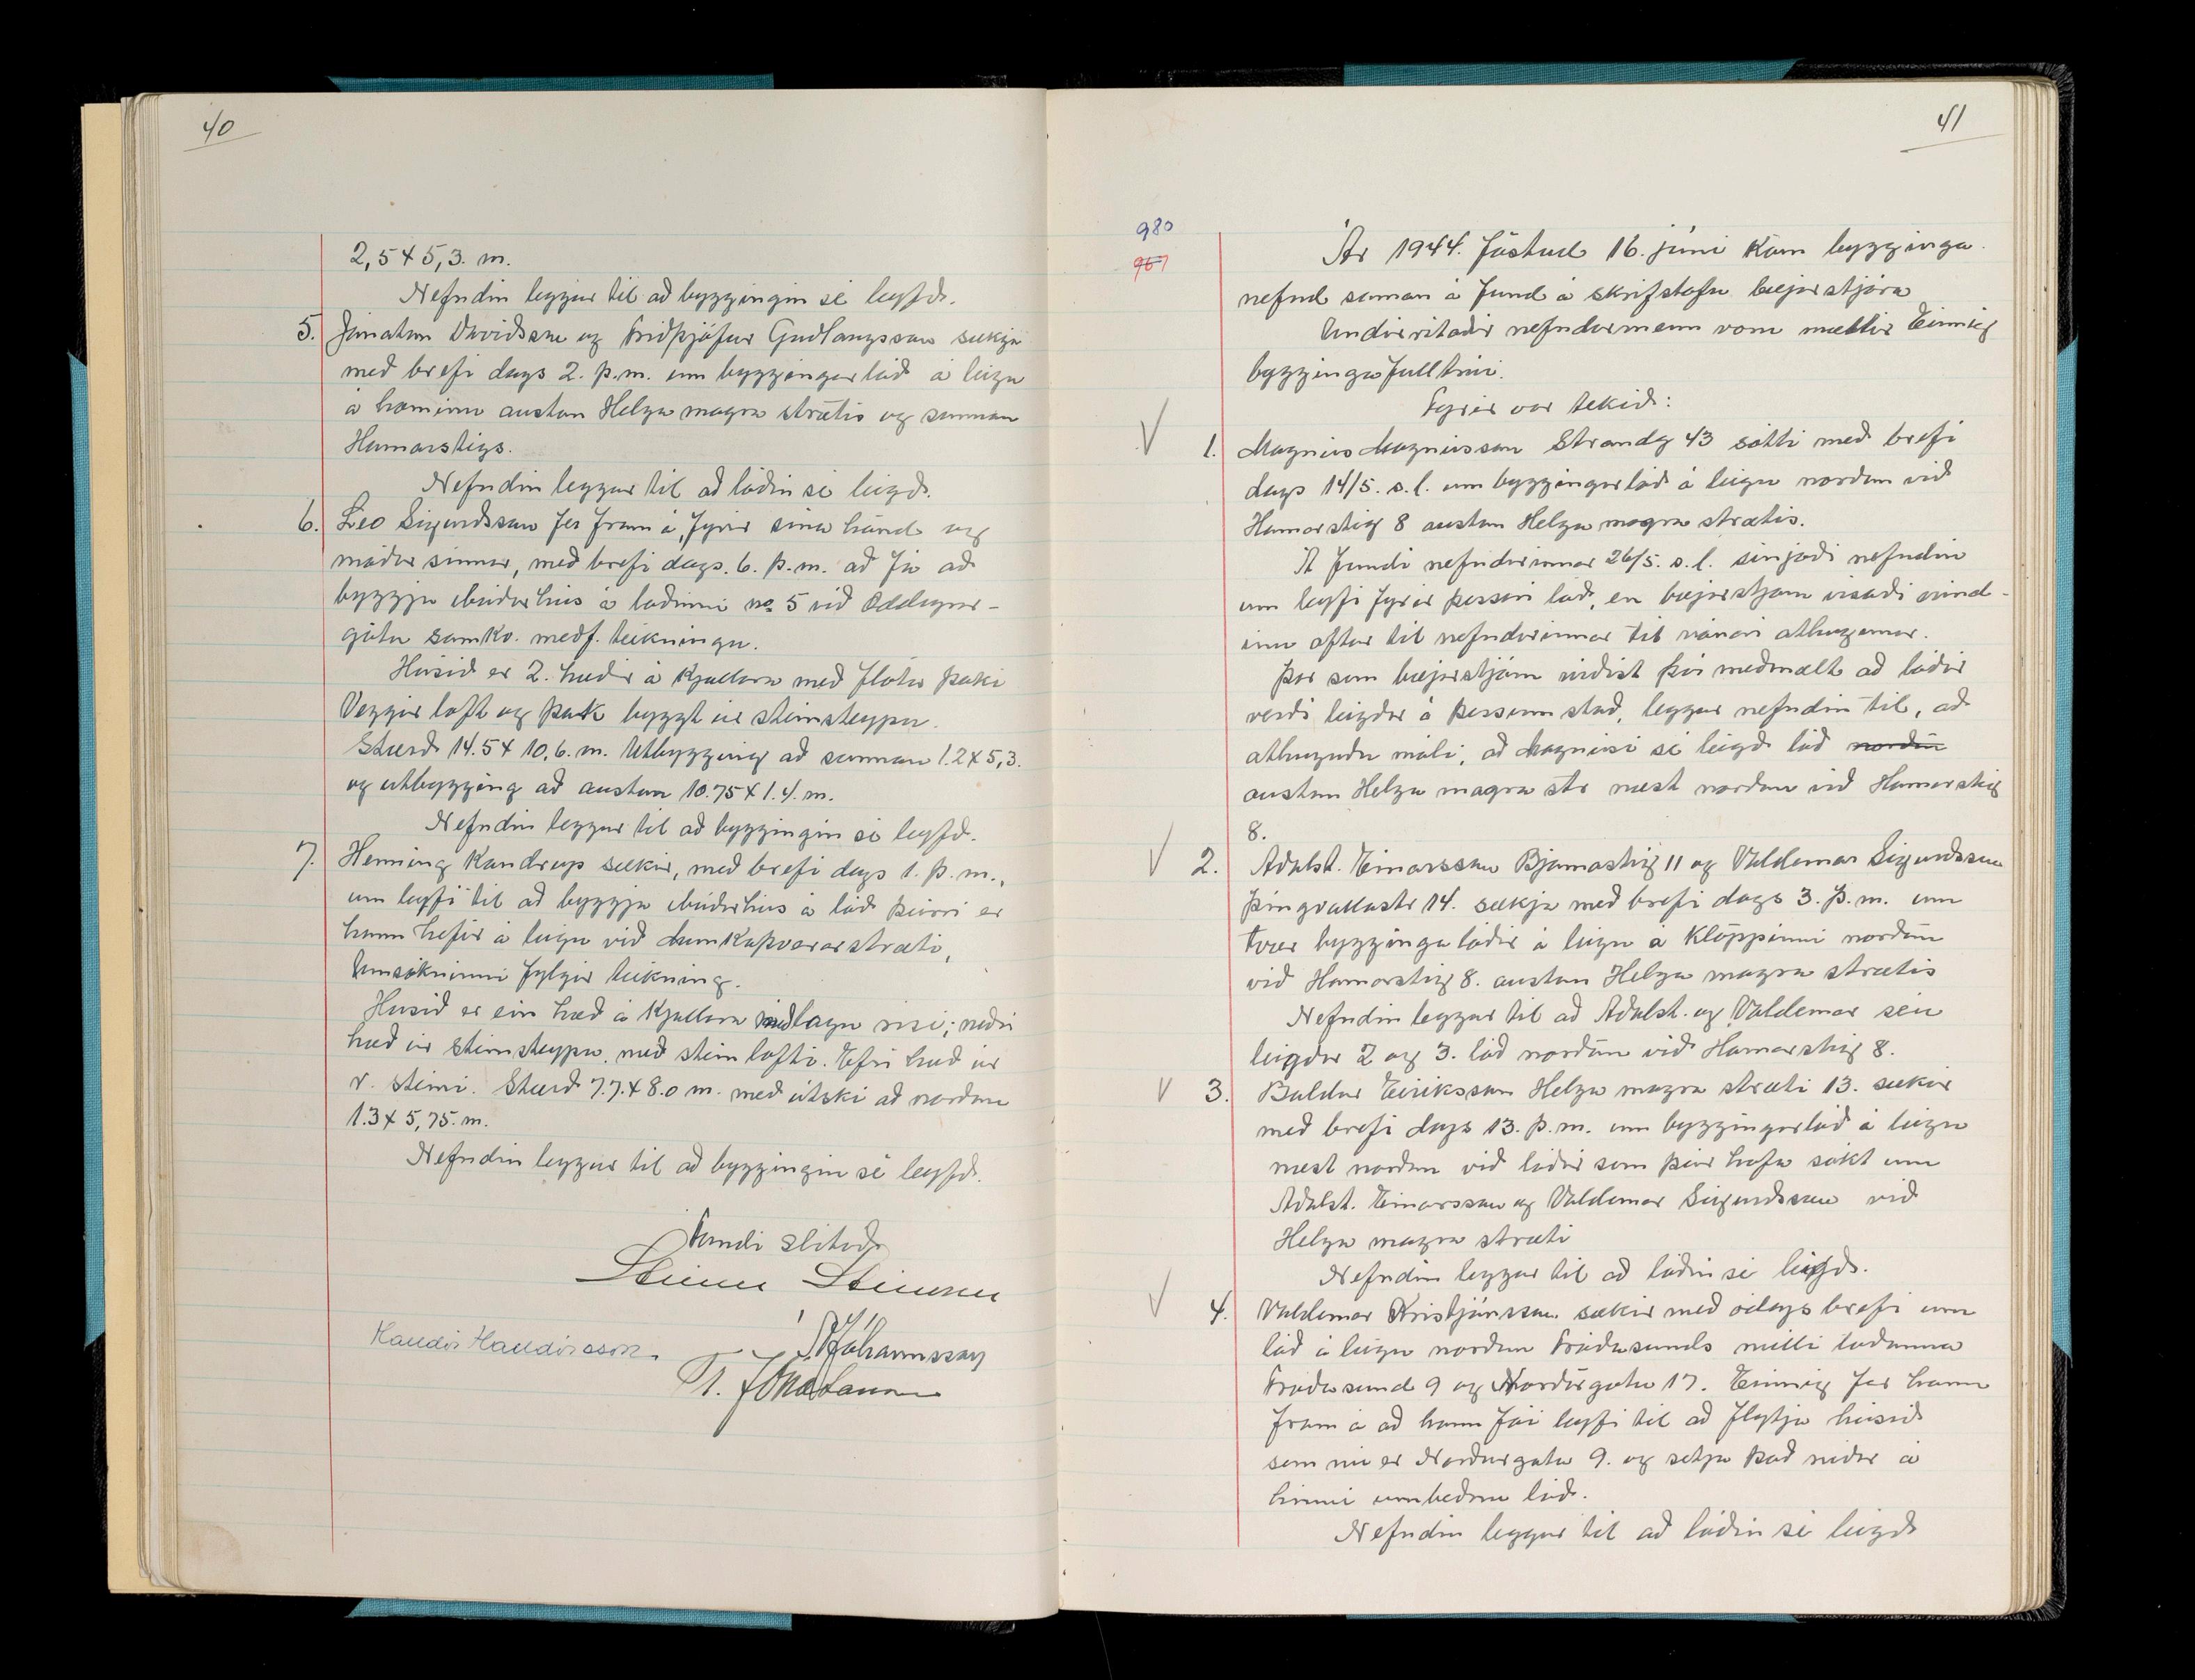 40
2,5 x 5,3. m.
Nefndin leggur til að byggingin sé leyfð.
5. Jónatan Davíðsson og Friðþjófur Guðlaugsson sækja
með brefi dags 2. þ.m. um byggingarlóð á leigu
á horninu austan Helga magra strætis og sunnan
Hamarstigs.
Nefndin leggur til að lóðin sé leigð.
6. Leo Sigurdsson fer fram á, fyrir sína hönd og
móður sinnar, með brefi dags. 6. þ.m. að fá að
byggja íbúðarhús á lóðinni no 5 við Oddeyrar-
götu samkv. meðf. teikningu.
Húsið er 2. hæðir á kjallara með flötu þaki
Veggir loft og þak byggt úr steinsteypu.
Stærð 14.5 x 10,6. m. Útbygging að sunnan 1.2 x 5,3.
og útbygging að austan 10.75 x 1.4. m.
Nefndin leggur til að byggingin sé leyfð.
7. Henning Kondrup sækir, með brefi dags 1. þ.m.,
um leyfi til að byggja íbúðarhús á lóð þeirri er
hann hefir á leigu við Munkaþverarstræti,
Umsókninni fylgir teikning.
Húsið er ein hæð á kjallara með lágu risi; neðri
hæð úr steinsteypu, með steinlofti. Efri hæð úr
r. steini. Stærð 7.7. x 8.0 m. með útskoti að norðan
1.3 x 5,75. m.
Nefndin leggur til að byggingin sé leyfð.
Fundi slitið
Steinn Steinsen
Halldór Halldórsson.
Jóhannsson
41
980
967
Ár 1944. föstud 16. júní kom bygginga
nefnd saman á fund á skrifstofu bæjarstjóra
Undirritaðir nefndarmenn voru mættir Einnig
byggingafulltrúi.
Fyrir var tekið:
1. Magnús Magnússon Strandg 43 sótti með brefi
dags 14/5. s.l. um byggingarlóð á leigu norðan við
Hamarstig 8 austan Helga magra strætis.
Á fundi nefndarinnar 26/5. s.l. sinjaði nefndin
um leyfi fyrir þessari lóð, en bæjarstjórn vísaði erind-
inu aftur til nefndarinnar til nánari athugunar.
Þar sem bæjarstjórn virðist því meðmælt að lóðir
verði leigðar á þessum stað, leggur nefndin til, að
athuguðu máli, að Magnúsi sé leigð lóð norðan
austan Helga magra str næst norðan við Hamarstig
8.
2. Aðalst. Einarsson Bjarmastig 11 og Valdemar Sigurdsson
Þingvallastr 14. sækja með brefi dags 3. þ.m. um
tvær byggingalóðir á leigu á Klöppinni norðan
við Hamarstig 8. austan Helga magra strætis
Nefndin leggur til að Aðalst. og Valdemar séu
leigðar 2 og 3. lóð norðan við Hamarstig 8.
3. Baldur Eiriksson Helga magra stræti 13. sækir
með brefi dags 13. þ.m. um byggingarlóð á leigu
næst norðan við lóðir sem þeir hafa sókt um
Aðalst. Einarsson og Valdemar Sigurdsson við
Helga magra stræti
Nefndin leggur til að lóðin sé leigð.
4. Valdemar Kristjánsson sækir með ódags brefi um
lóð á leigu norðan Fróðasunds milli lóðanna
Fróðasund 9 og Norðurgata 17. Einnig fer hann
fram á að hann fái leyfi til að flytja húsið
sem nú er Norðurgata 9. og setja það niður á
hinni umbeðnu lóð.
Nefndin leggur til að lóðin sé leigð